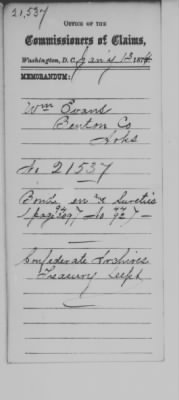 21,537
OFFICE OF THE
Commissioners of Claims,
Washington, D. C., Jan'y 13 1874
MEMORANDUM:
Wm Evans
Benton Co
Arks
No. 21537
Bonds, en
Confederate Archives
Treasury Dept